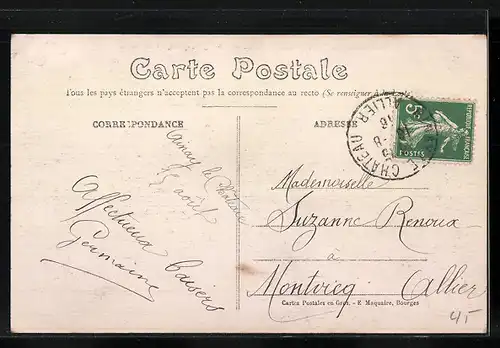 Carte Postale
Tous les pays étrangers n'acceptent pas la correspondance au recto (Se renseigner à
CORRESPONDANCE
ADRESSE
Ainay le Château
15 août
Affectueux baisers
Germaine
Mademoiselle
Suzanne Renoux
à
Montvicq Allier
Cartes Postales en Gros. - E. Maquaire, Bourges
5c
REPUBLIQUE FRANÇAISE
POSTES
CHATEAU
ALLIER